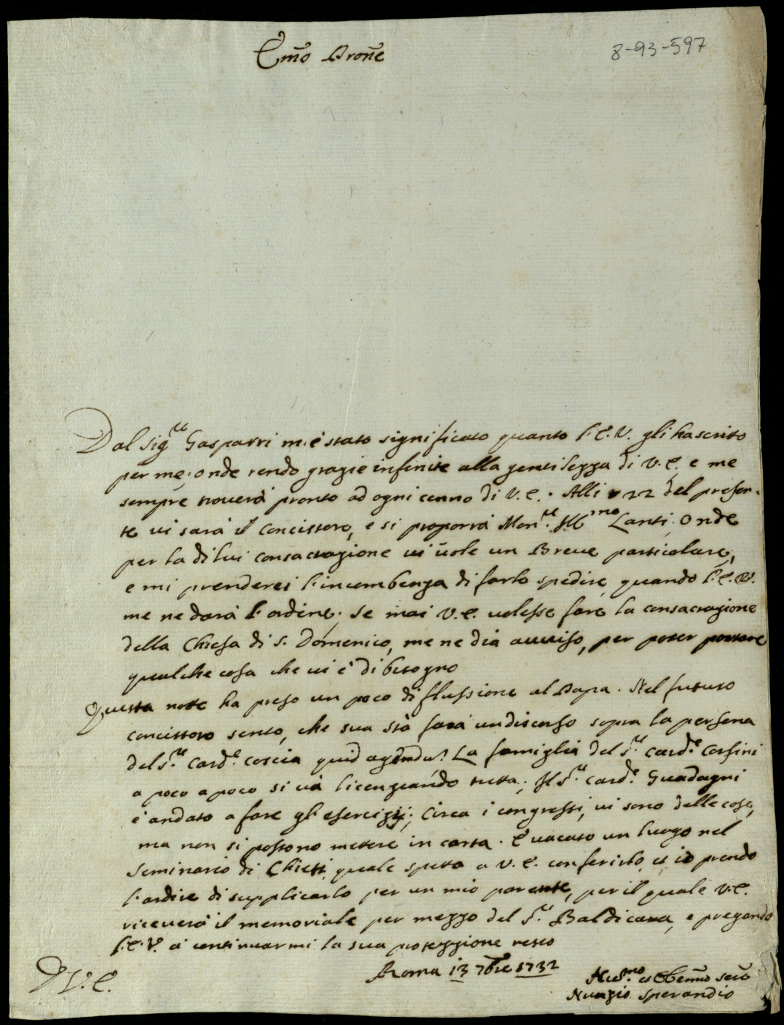 8-93-597
Em̃o Prone
Dal Sig.re Gasparri m'è stato significato quanto l'E.V. gli ha scritto
per me: onde rendo grazie infinite alla gentilezza di V.E. e me
sempre troverà pronto ad ogni cenno di V.E. Alli 22 del presen-
te vi sarà il concistoro, e si proporrà Mon.re Ill.mo Lanti. Onde
per la di lui consacrazione vi vuole un Breve particolare,
e mi prenderei l'incombenza di farlo spedire, quando l'E.V.
me ne darà l'ordine. Se mai V.E. volesse fare la consacrazione
della Chiesa di S. Domenico, me ne dia avviso, per poter portare
qualche cosa che vi è di bisogno
Questa notte ha preso un poco di flussione al Papa. Nel futuro
concistoro sento, che sua Stà farà un discorso sopra la persona
del S.re Card.e Coscia quid agendu? La famiglia del S.re Card.e Corsini
a poco a poco si và licenziando tutta; Il S.re Card.e Guadagni
è andato a fare gli esercizij; Circa i congressi, vi sono delle cose,
ma non si possono mettere in carta. È vacato un luogo nel
Seminario di Chieti, quale spetta a V.E. conferirlo, et io prendo
l'ardire di supplicarlo per un mio parente, per il quale V.E.
riceverà il memoriale per mezzo del S.re Baldicana, e pregando
l'E.V. a continuarmi la sua protezzione resto
D V.E.
Roma 13 7bre 1732
et Obb.mo
Nunzio Sperandio